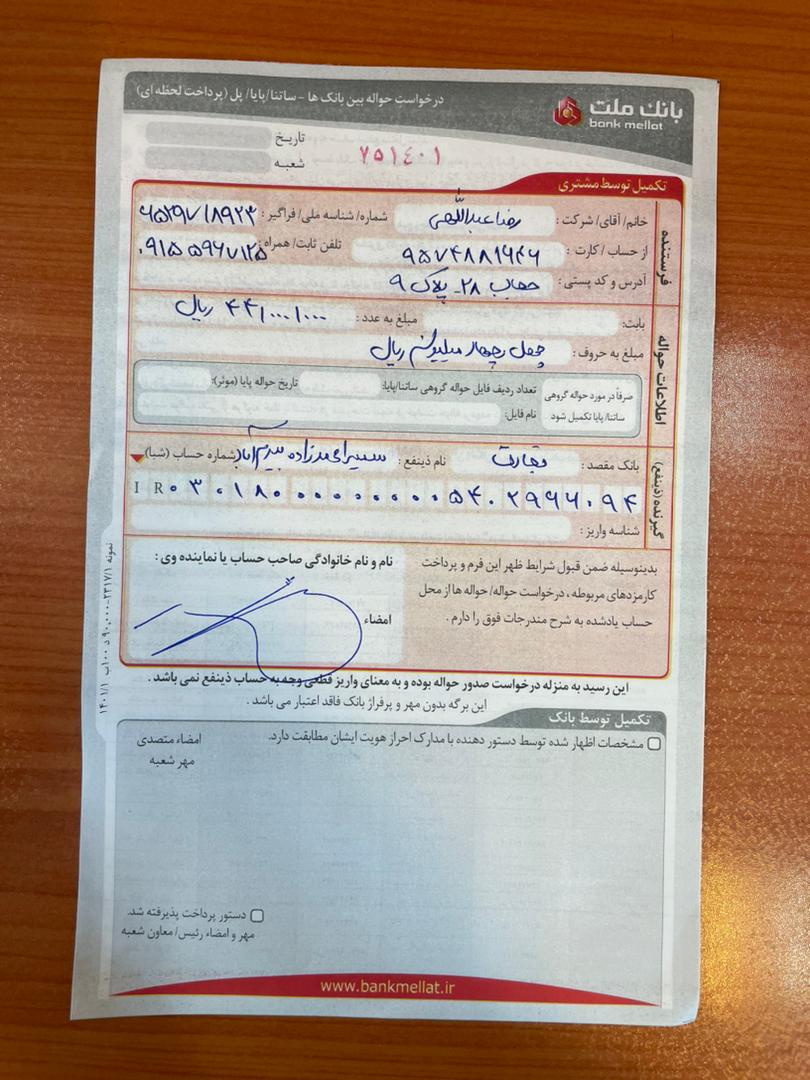 بانک ملت
bank mellat
درخواست حواله بین بانک ها - ساتنا/پایا/پل (پرداخت لحظه ای)
تاریخ
۷۵۱۴۰۱
شعبه
تکمیل توسط مشتری
فرستنده
خانم/آقای/شرکت: رضا عبداللهی شماره/شناسه ملی/فراگیر:
از حساب/کارت: ۹۵۷۴۸۸۱۶۴۶ تلفن ثابت/همراه: ۰۹۱۵۵۹۶۷۱۲۵
آدرس و کد پستی: حجاب ۲۸- پلاک ۹
اطلاعات حواله
بابت: مبلغ به عدد: ۴۴/۰۰۰/۰۰۰ ریال
مبلغ به حروف: چهل و چهار میلیون ریال
صرفاً در مورد حواله گروهی ساتنا/پایا تکمیل شود
تعداد ردیف فایل حواله گروهی ساتنا/پایا: تاریخ حواله پایا (موثر):
نام فایل:
گیرنده (ذینفع)
بانک مقصد: تجارت نام ذینفع: احمدزاده شماره حساب (شبا)
IR ۰۳۰۱۸۰۰۰۰۰۰۰۰۰۰۵۴۰۲۹۶۶۰۹۴
شناسه واریز:
بدینوسیله ضمن قبول شرایط ظهر این فرم و پرداخت
کارمزدهای مربوطه، درخواست حواله/حواله ها از محل
حساب یادشده به شرح مندرجات فوق را دارم.
نام و نام خانوادگی صاحب حساب یا نماینده وی:
امضاء
این رسید به منزله درخواست صدور حواله بوده و به معنای واریز قطعی وجه به حساب ذینفع نمی باشد.
این برگه بدون مهر و پرفراژ بانک فاقد اعتبار می باشد.
تکمیل توسط بانک
مشخصات اظهار شده توسط دستور دهنده با مدارک احراز هویت ایشان مطابقت دارد.
امضاء متصدی
مهر شعبه
دستور پرداخت پذیرفته شد.
مهر و امضاء رئیس/معاون شعبه
www.bankmellat.ir
نمونه ۲۳۱۷/۱-۹۰،۰۰۰ د ۱۰۰ب ۱۴۰۱/۱